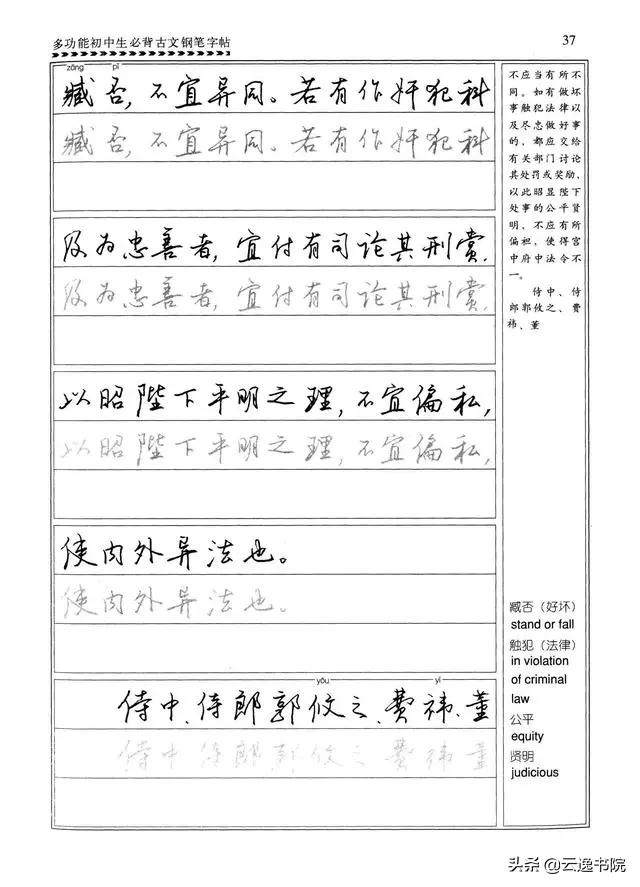 多功能初中生必背古文钢笔字帖
37
zāng pǐ
臧否,不宜异同。若有作奸犯科
臧否,不宜异同。若有作奸犯科
及为忠善者,宜付有司论其刑赏,
及为忠善者,宜付有司论其刑赏,
以昭陛下平明之理,不宜偏私,
以昭陛下平明之理,不宜偏私,
使内外异法也。
使内外异法也。
yōu yī
侍中、侍郎郭攸之、费祎、董
侍中、侍郎郭攸之、费祎、董
不应当有所不
同。如有做坏
事触犯法律以
及尽忠做好事
的,都应交给
有关部门讨论
其处罚或奖励,
以此昭显陛下
处事的公平贤
明,不应有所
偏袒,使得宫
中府中法令不
一。
侍中、侍
郎郭攸之、费
祎、董
臧否(好坏)
stand or fall
触犯(法律)
in violation
of criminal
law
公平
equity
贤明
judicious
头条@云逸书院